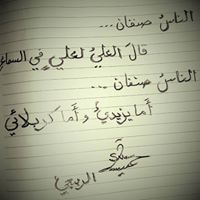 الناسُ صنفان ...
قالَ العليُ لعليٍ في السماءِ
الناسُ صنفان ...
أما يزيديُ وأما كربلائي
الربيعي